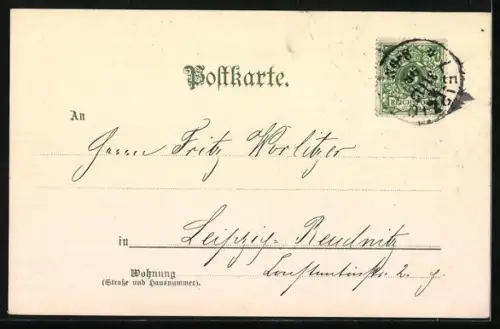 Postkarte.
An
Herrn Fritz Worlitzer
in Leipzig-Reudnitz
Wohnung
(Straße und Hausnummer).
Constantinstr. 2